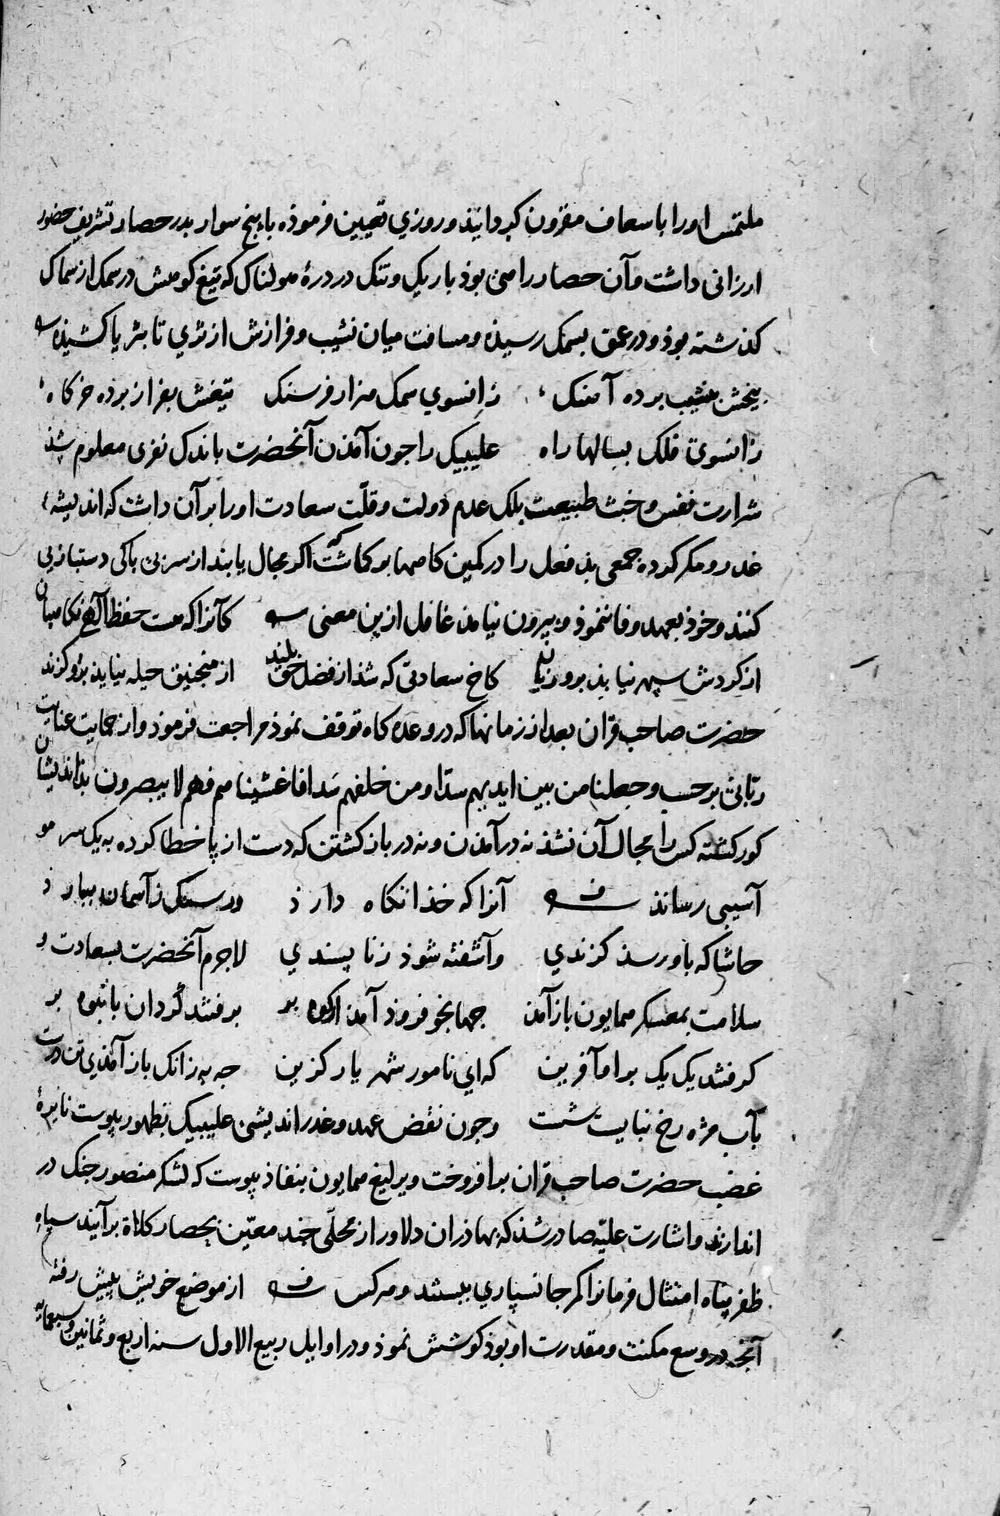 ملتمس او را باسعاف مقرون کردانیذ و روزی تعیین فرموذه با پنج سوار بدر حصار تشریف حضور
ارزانی داشت و آن حصار راهی بوذ باریک و تنک در درهٔ هولناک که تیغ کوهش در سمک از سماک
کذشته بوذ و در عمق بسمک رسیذه و مسافت میان نشیب و فرازش از ثری تا بثریا کشیذه
بیخش بنشیب برده آهنک زانسوی سمک هزار فرسنک تیغش بفراز برده خرکاه
زانسوی فلک بسالها راه علیبیک را جون آمذن آنحضرت باندک نفری معلوم شذ
شرارت نفس و خبث طبیعت بلک عدم دولت و قلّت سعادت او را بر آن داشت که اندیشهٔ
غدر و مکر کرده جمعی بذ فعل را در کمین کاهها بر کماشت که اکر مجال یابند از سر بی باکی دستبازیی
کنند و خوذ بعهد وفا ننموذ و بیرون نیامذ غافل ازین معنی کآنرا که هست حفظ الهی نکاهبان
از کردش سپهر نیایذ برو زیان کاخ سعادتی که شذ از فضل حق بلند از منجنیق حیله نیایذ برو کزند
حضرت صاحب قران بعد از زمانها که در وعده کاه توقف نموذ مراجعت فرموذ و از حمایت عنایت
ربّانی بر حسب و جعلنا من بین ایدیهم سدّا و من خلفهم سدا فاغشیناهم فهم لا یبصرون بذاندیشان
کور کشته کس را مجال آن نشذ نه در آمذن و نه در باز کشتن که دست از پا خطا کرده به یک سر مو
آسیبی رسانذ آنرا که خذا نکاه دارذ ور سنک ز آسمان ببارذ
حاشا که باو رسذ کزندی و آشفته شوذ ز ناپسندی لاجرم آنحضرت بسعادت و
سلامت بمعسکر همایون باز آمذ جهانجو فروذ آمذ از کوه بر برفتند کردان بانبوه بر
کرفتند یک یک برو آفرین که ای نامور شهریار کزین جه به زانک باز آمذی تن درست
بآب مژه رخ نبایست شست و جون نقض عهد و غدر اندیشی علیبیک بظهور پیوست نایرهٔ
غضب حضرت صاحب قران برافروخت و یرلیغ همایون بنفاذ پیوست که لشکر منصور جنک در
اندازند و اشارت علیّه صادر شذ که بهاذران دلاور از محلّی جند معیّن بحصار کلاة برآیند سپاه
ظفر پناه امتثال فرمانرا کمر جانسپاری ببستند و هرکس از موضع خویش پیش رفته
آنجه در وسع مکنت و مقدرت او بوذ کوشش نموذ و در اوایل ربیع الاول سنه اربع و ثمانین و سبعمایه